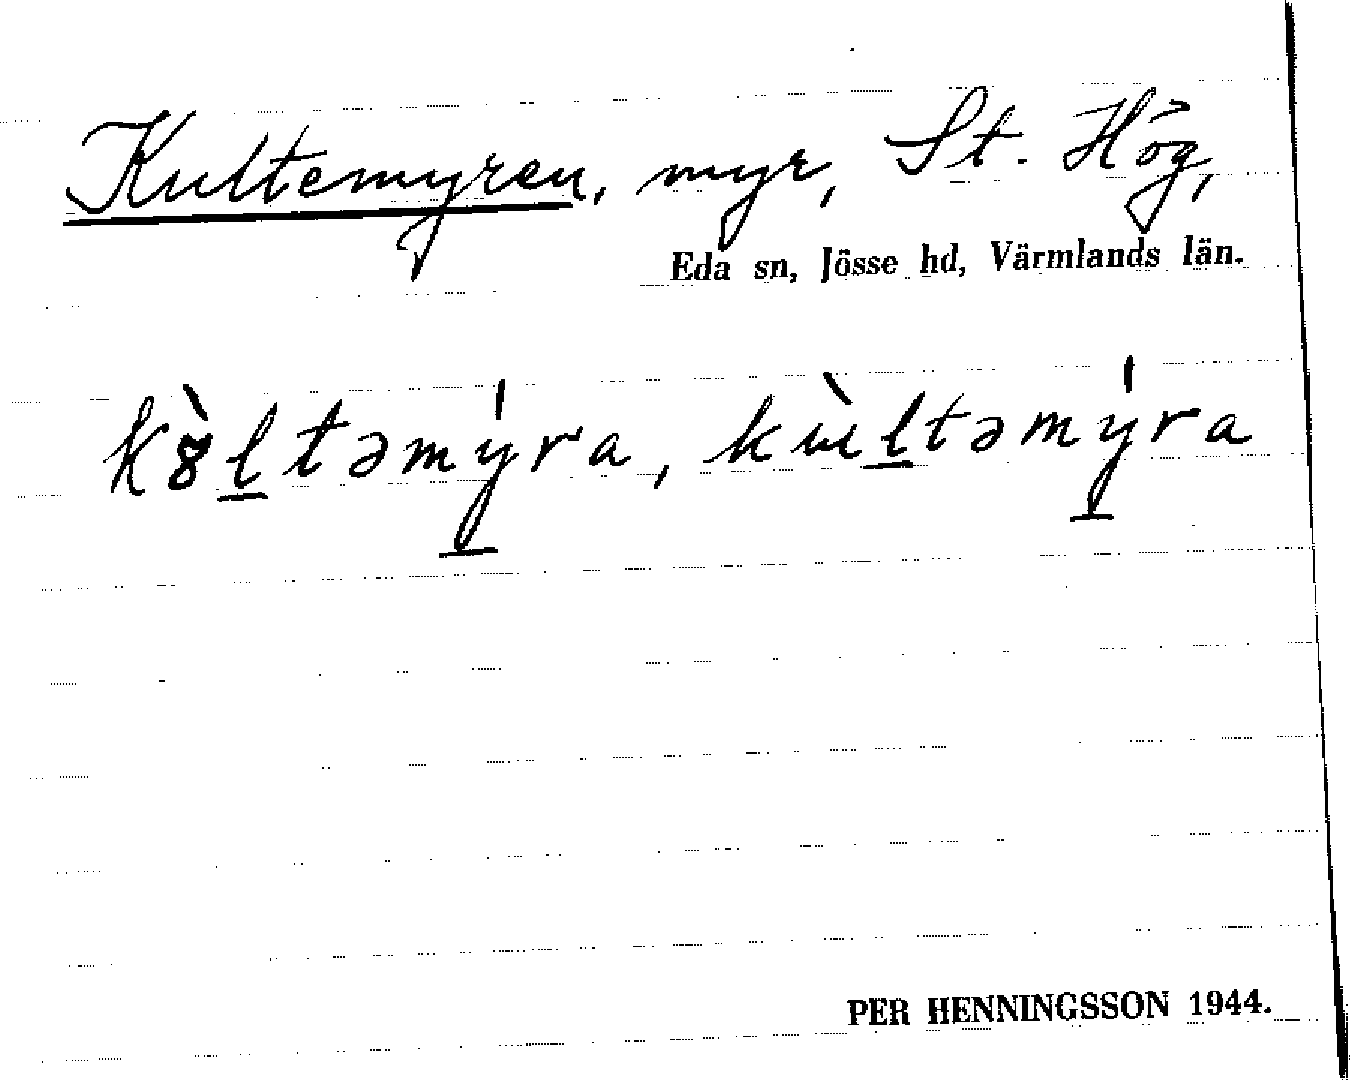 Kultemyren, myr, St. Hög,
Eda sn, Jösse hd, Värmlands län.
k8̀l̲təmý̲ra, kùl̲təmý̲ra
PER HENNINGSSON 1944.